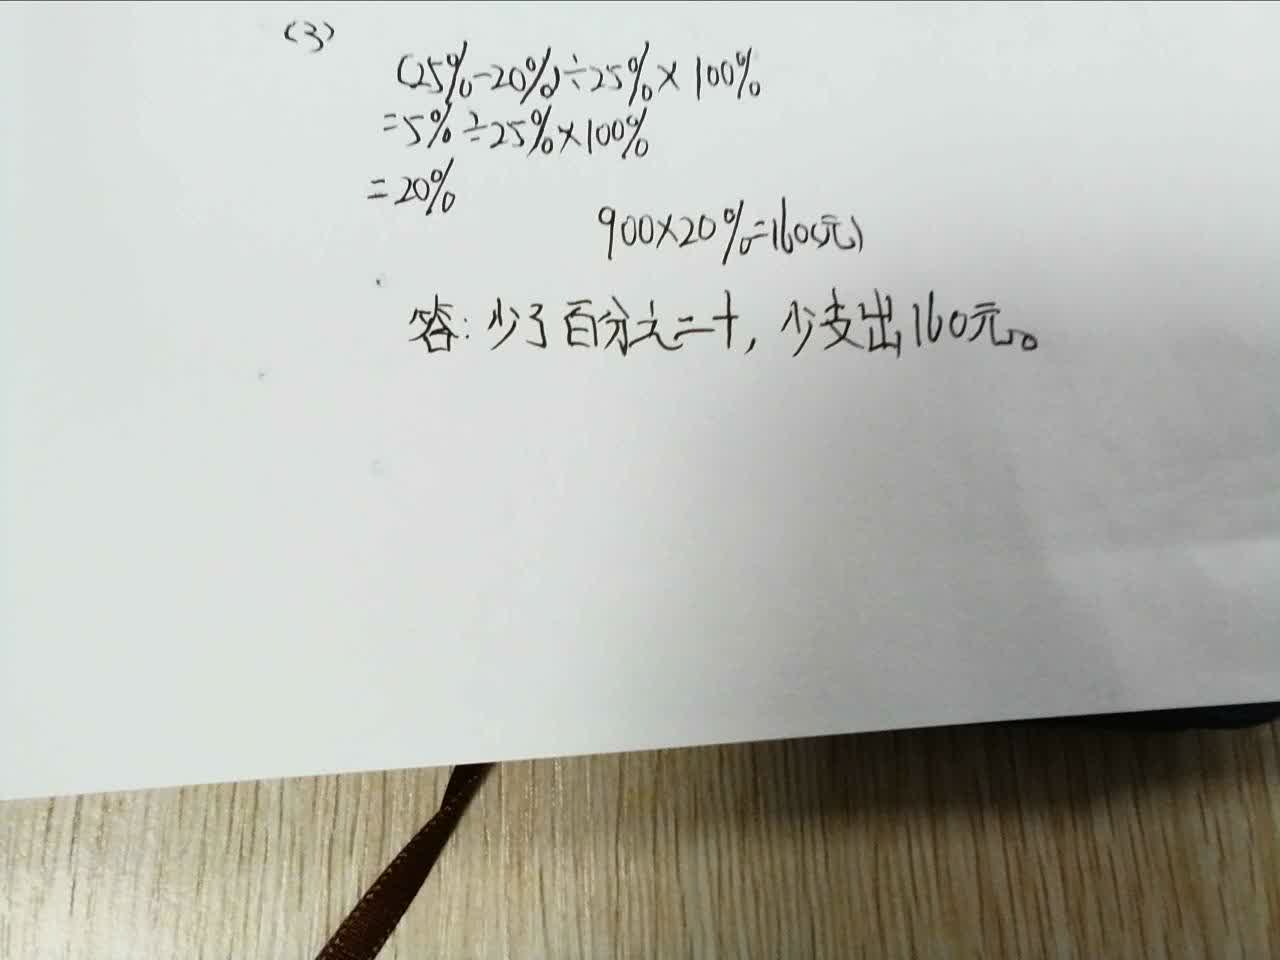 (3)
(25%-20%)÷25%×100%
=5%÷25%×100%
=20%
900×20%=160(元)
答:少了百分之二十,少支出160元。